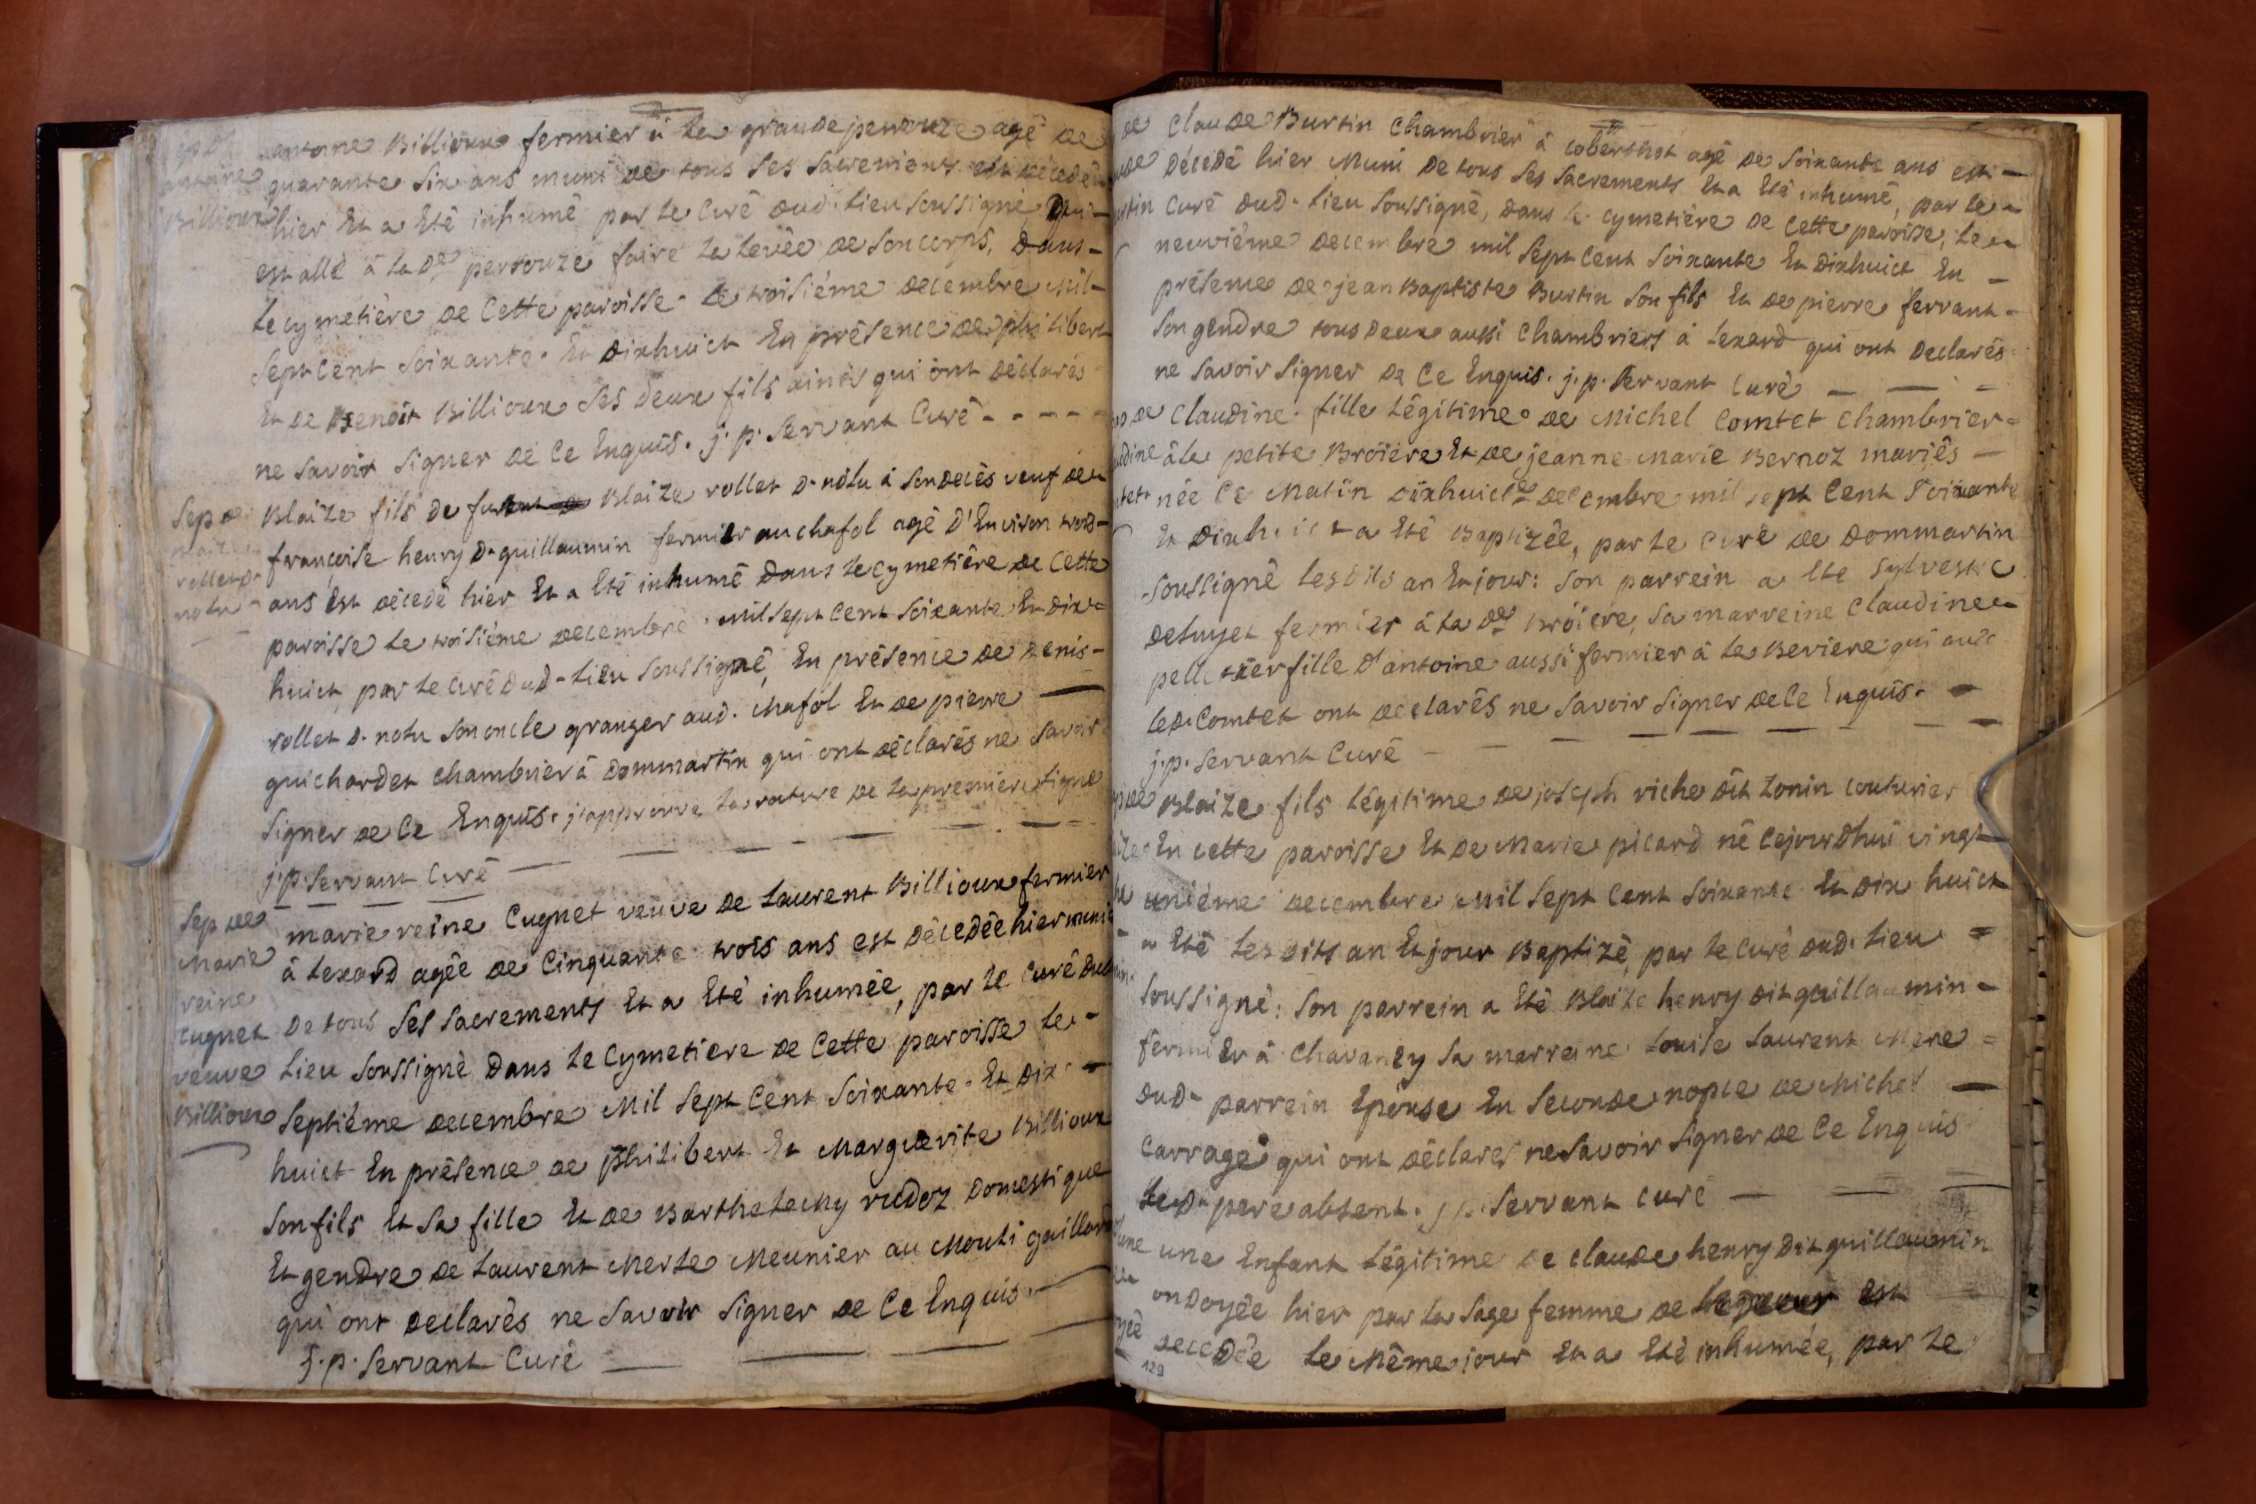 antoine Billioux fermier à la grande perrouze agé de
quarante six ans muni de tous ses sacrements est décedé
hier Et a Eté inhumé par le curé dud. lieu soussigné qui
est allé à lade perrouze faire la levée de son corps, Dans
le cymetière de Cette paroisse. Le troisième decembre Mil
sept Cent soixante. Et dixhuict En présence de philibert
Et de Benoit Billioux ses deux fils ainés qui ont déclarés
ne savoir signer de Ce Enquis. j. p. servant Curé
Blaize fils de feu Blaize rollet d. nolu à son decès veuf de
françoise henry d. guillaumin fermier au chafol agé d'Environ trois
ans Est décedé hier Et a Eté inhumé Dans le cymetière de Cette
paroisse le troisième decembre Mil sept Cent soixante Et dix
huict, par le curé Dud. lieu soussigné, En présence de Denis
rollet d. nolu son oncle granger aud. chafol Et de pierre
guichardet chambrier à Dommartin qui ont déclarés ne savoir
signer de Ce Enquis. j'approuve la rature de la première ligne
j. p. servant Curé
marie reine Cugnet veuve de laurent Billioux fermier
à lexard agée de Cinquante trois ans est décedée hier munie
De tous ses sacrements Et a Eté inhumée, par le curé Dud
lieu soussigné Dans le Cymetiere de Cette paroisse le
septième decembre Mil sept Cent soixante. Et Dix
huict En présence de philibert Et Marguerite Billioux
son fils Et sa fille Et de Barthelemy rudoz Domestique
Et gendre de laurent Merle Meunier au Mouli gaillard
qui ont declarés ne savoir signer de Ce Enquis.
j. p. servant Curé
antoine
Billioux
Sep de
rollet d.
nolu
Sep de
Marie
reine
cugnet
veuve
Billioux
Claude Burtin Chambrier à coberthot agé de soixante ans est
Décedé hier Muni De tous ses sacrements Et a Eté inhumé, par le
Curé dud. lieu soussigné, dans le cymetière de Cette paroisse, le
neuvième decembre mil sept Cent soixante Et dixhuict En
présence de jean Baptiste Burtin son fils Et de pierre ferrant
son gendre tous Deux aussi Chambriers à lexard qui ont Declarés
ne savoir signer de Ce Enquis. j. p. servant Curé
Claudine fille légitime de Michel Comtet Chambrier
à la petite Broïere Et de jeanne Marie Bernoz mariés
née Ce Matin dixhuict de decembre mil sept Cent soixante
Et Dixhuict a Eté Baptizée, par le Curé de Dommartin
soussigné lesdits an Et jour: son parrein a Eté sylvestre
deluyet fermier à lade Broïere, sa marreine Claudine
pelletier fille d'antoine aussi fermier à la Beviere qui avec
led. Comtet ont declarés ne savoir signer de Ce Enquis.
j. p. servant Curé
Blaize fils légitime de joseph riche dit tonin couturier
En cette paroisse Et De Marie picard né Cejourdhui vingt
unième decembre Mil sept Cent soixante Et dix huict
a Eté lesdits an Et jour Baptizé, par le curé dud. lieu
soussigné: son parrein a Eté Blaize henry dit guillaumin
fermier à chavaney sa marreine louise laurent Mere
dud. parrein Epouse En seconde nopce de Michel
Carrage qui ont déclarés ne savoir signer de Ce Enquis
led. pere absent. j. p. servant curé
une Enfant légitime de claude henry dit guillaumin
ondoyée hier par la sage femme de est
decedée le Même jour Et a Eté inhumée, par le
129